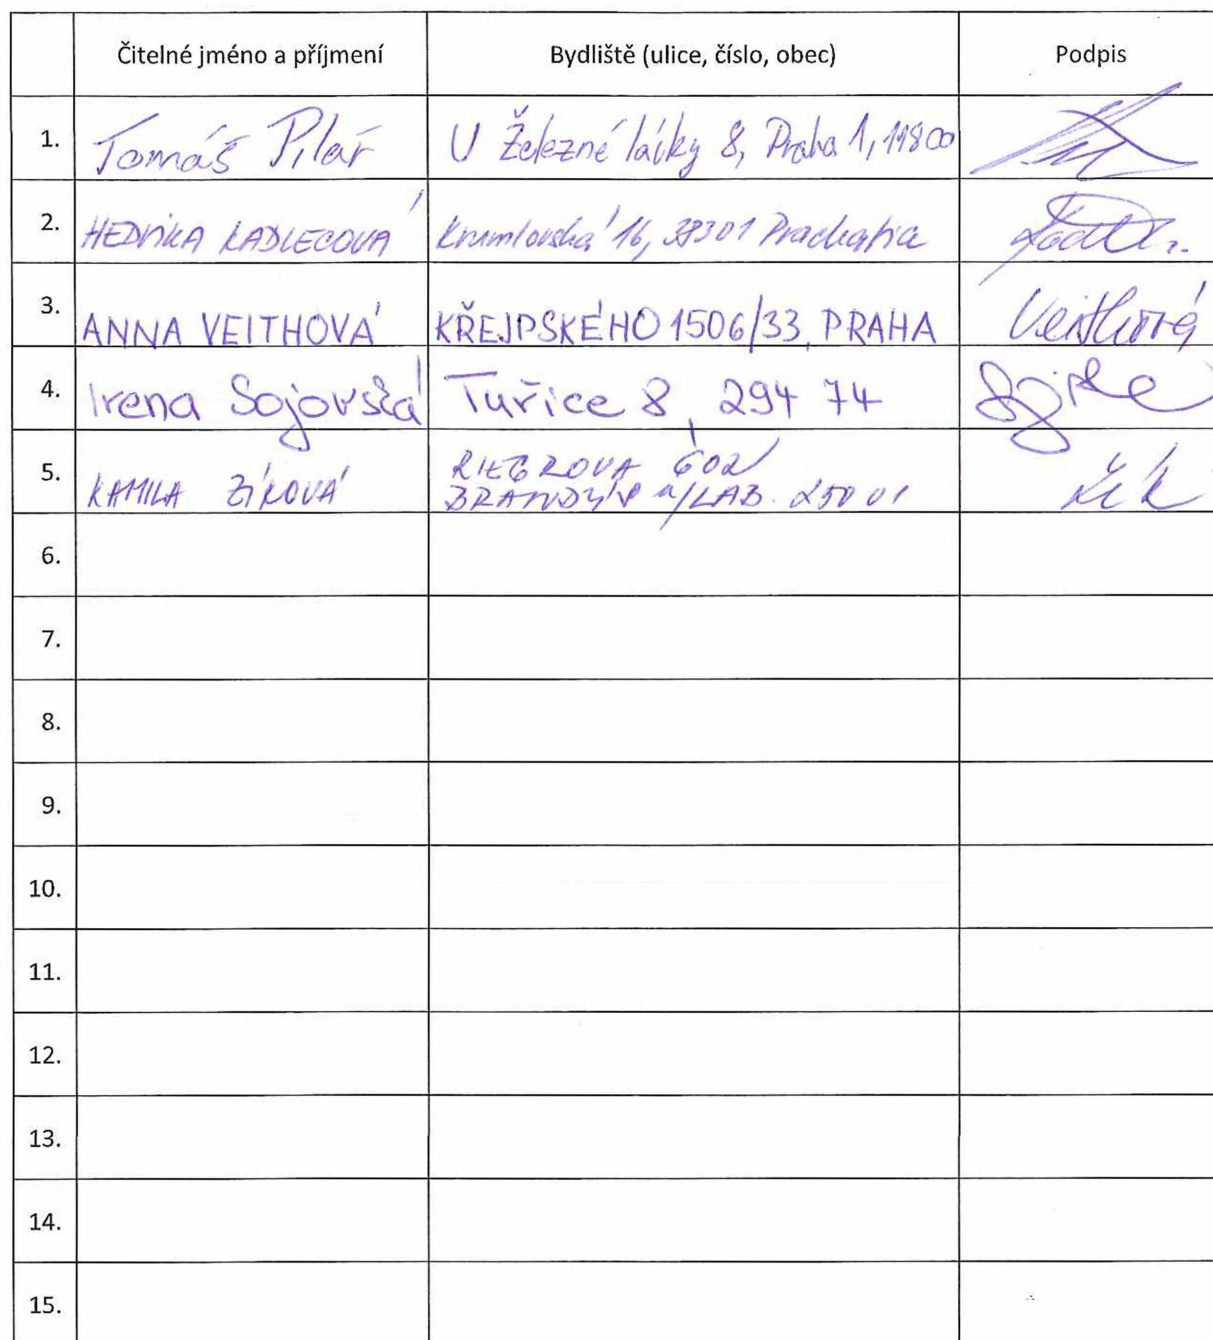 Čitelné jméno a příjmení Bydliště (ulice, číslo, obec) Podpis
1. Tomáš Pilař U Železné lávky 8, Praha 1, 11800
2. HEDVIKA KADLECOVÁ Krumlovská 16, 38301 Prachatice
3. ANNA VEITHOVÁ KŘEJPSKÉHO 1506/33, PRAHA Veithová
4. Irena Sojovská Tuřice 8, 294 74
5. KAMILA ZÍKOVÁ RIEGROVA
BRANDÝS n/LAB. 250 01
6.
7.
8.
9.
10.
11.
12.
13.
14.
15.